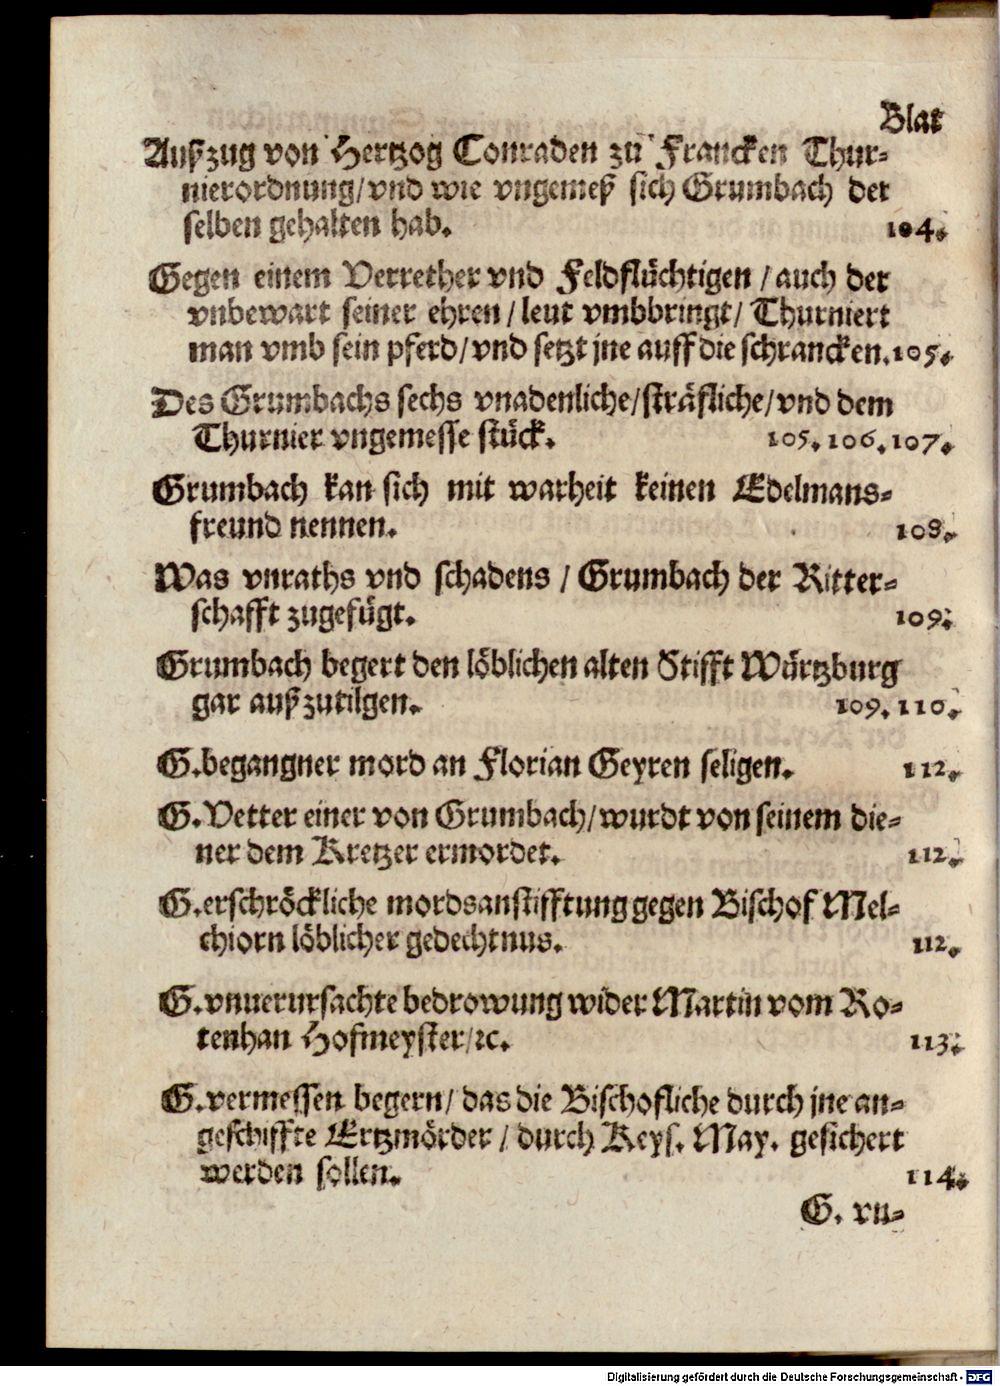 Blat
Außzug von Hertzog Conraden zu Francken Thur-
nierordnung/vnd wie vngemeß sich Grumbach der
selben gehalten hab. 104.
Gegen einem Verrether vnd Feldflüchtigen / auch der
vnbewart seiner ehren / leut vmbbringt/ Thurniert
man vmb sein pferd/vnd setzt jne auff die schrancken. 105.
Des Grumbachs sechs vnadenliche/sträfliche/vnd dem
Thurnier vngemesse stück. 105. 106. 107.
Grumbach kan sich mit warheit keinen Edelmans-
freund nennen. 108.
Was vnraths vnd schadens / Grumbach der Ritter-
schafft zugefügt. 109.
Grumbach begert den löblichen alten Stifft Würtzburg
gar außzutilgen. 109. 110.
G. begangner mord an Florian Geyren seligen. 112.
G. Vetter einer von Grumbach/wurdt von seinem die-
ner dem Kretzer ermordet. 112.
G. erschröckliche mordsanstifftung gegen Bischof Mel-
chiorn löblicher gedechtnus. 112.
G. vnuerursachte bedrowung wider Martin vom Ro-
tenhan Hofmeyster/ꝛc. 113.
G. vermessen begern/ das die Bischofliche durch jne an-
geschiffte Ertzmörder / durch Keys. May. gesichert
werden sollen. 114.
G. vn-
Digitalisierung gefördert durch die Deutsche Forschungsgemeinschaft - DFG